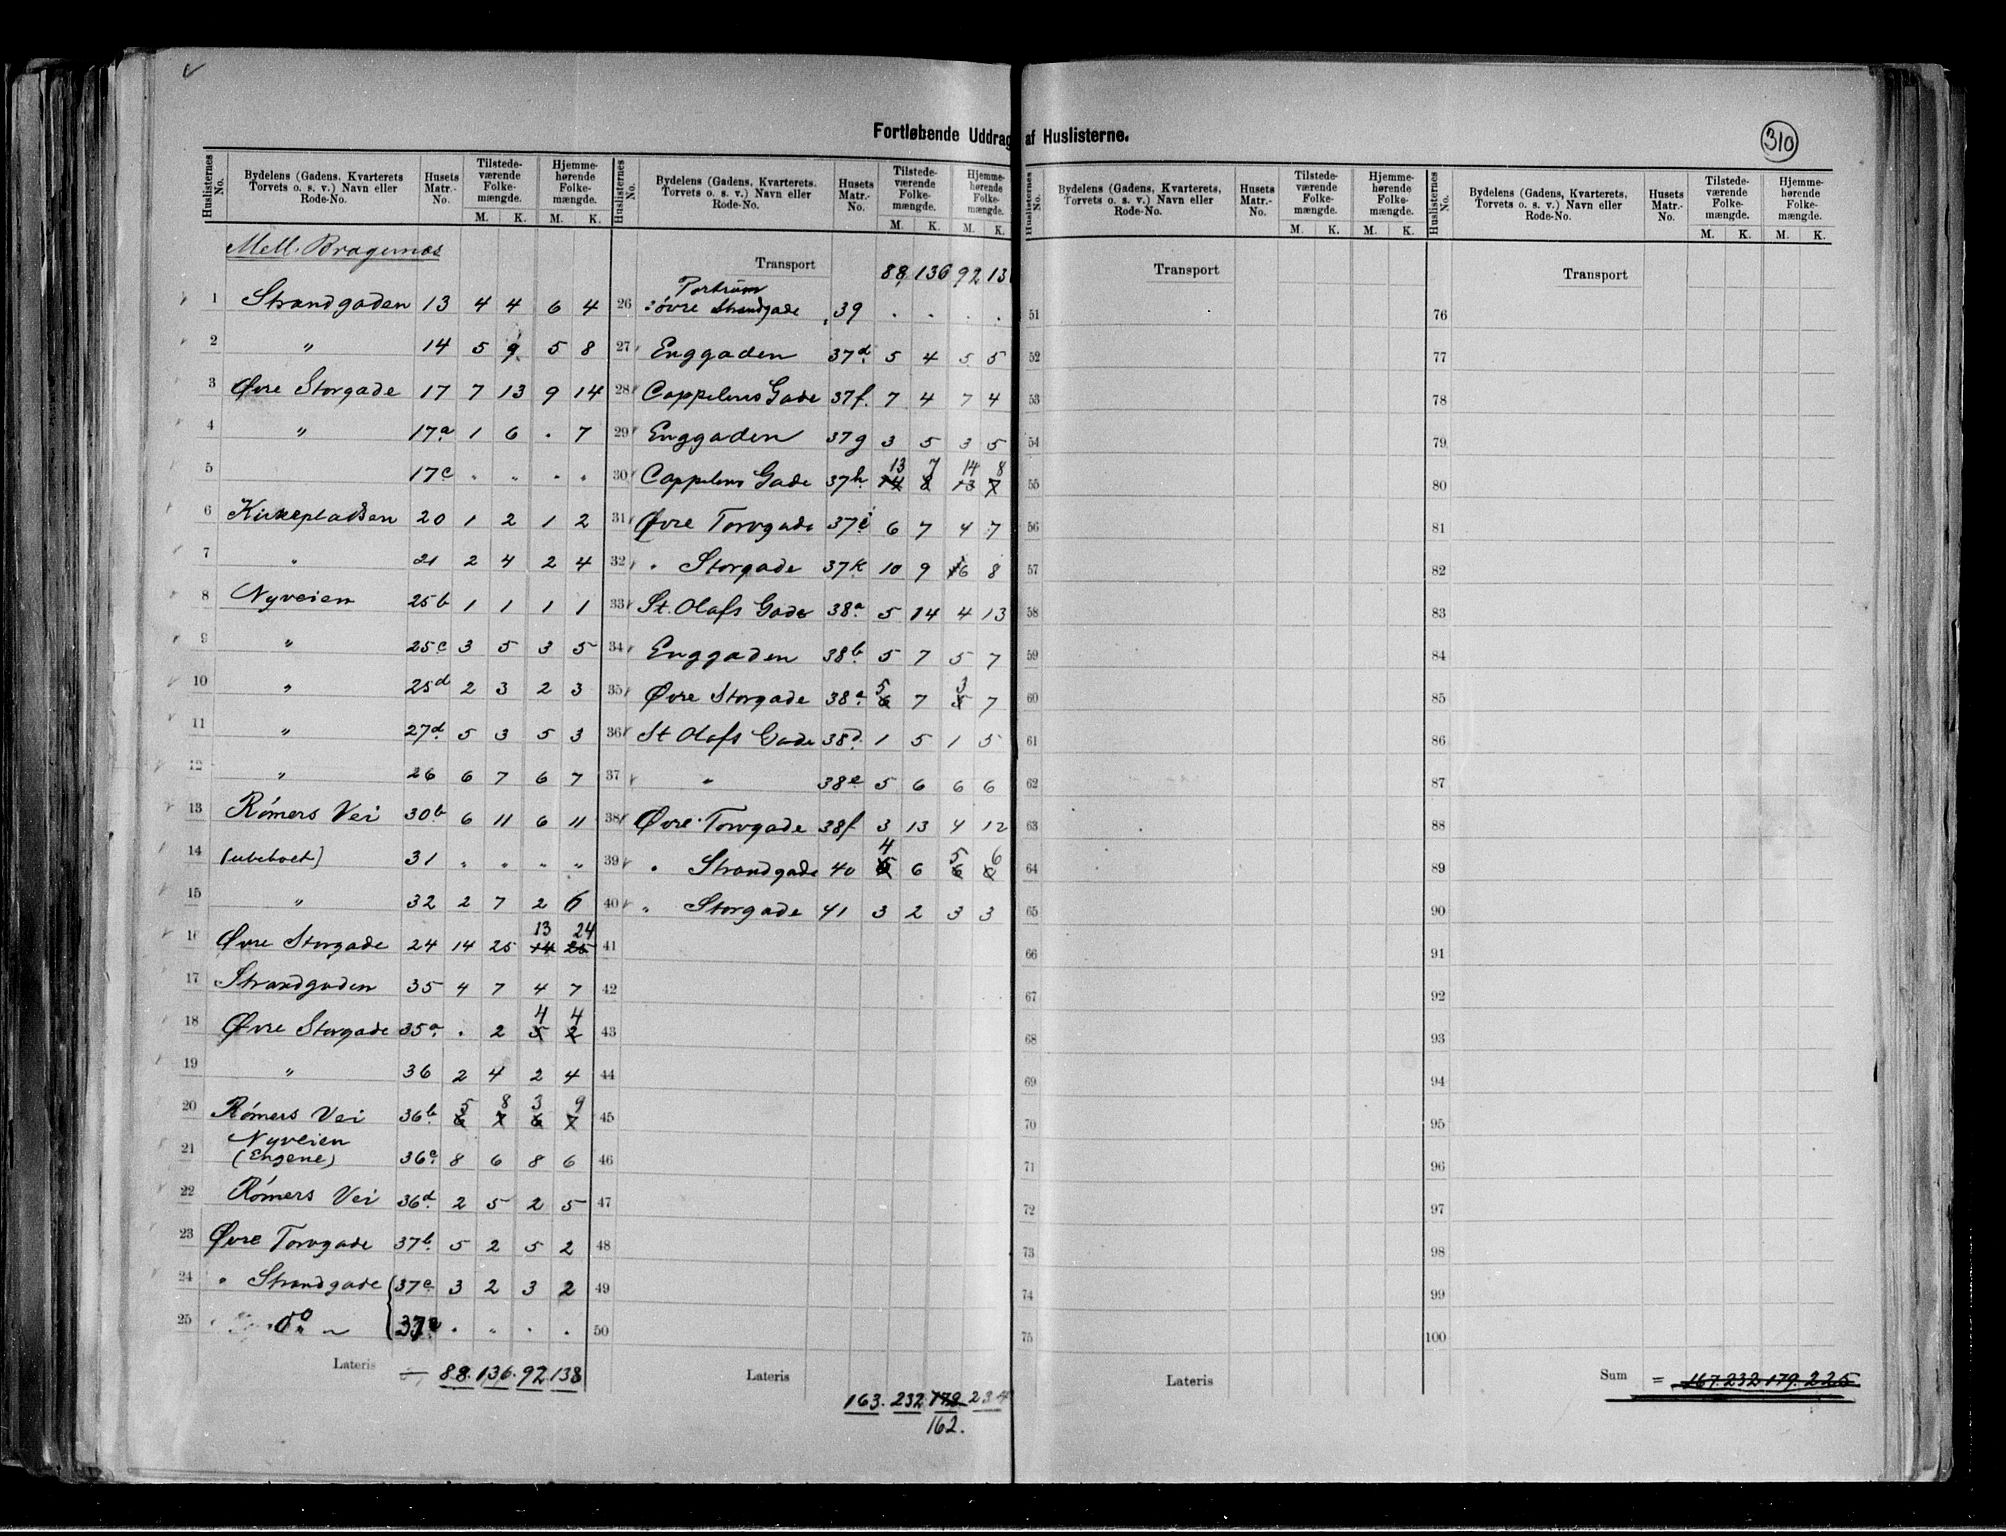 Fortløbende Uddrag af Huslisterne.
310
Huslisternes No. | Bydelens (Gadens, Kvarterets Torvets o. s. v.) Navn eller Rode-No. | Husets Matr.-No. | Tilstede-værende Folke-mængde. M. K. | Hjemme-hørende Folke-mængde. M. K.
Mell. Bragernæs
1 Strandgaden 13 4 4 6 4
2 " 14 5 9 5 8
3 Øvre Storgade 17 7 13 9 14
4 " 17a 1 6 . 7
5 17c " " . .
6 Kirkepladsen 20 1 2 1 2
7 " 21 2 4 2 4
8 Nyveien 25b 1 1 1 1
9 " 25c 3 5 3 5
10 " 25d 2 3 2 3
11 " 27d 5 3 5 3
12 " 26 6 7 6 7
13 Rømers Vei 30b 6 11 6 11
14 (ubeboet) 31 " " " "
15 " 32 2 7 2 6
13 24
16 Øvre Storgade 24 14 25 14 25
17 Strandgaden 35 4 7 4 7
4 4
18 Øvre Storgade 35a . 2 5 2
19 " 36 2 4 2 4
5 8 3 9
20 Rømers Vei 36b 6 7 6 7
Nyveien
21 (Engene) 36c 8 6 8 6
22 Rømers Vei 36d 2 5 2 5
23 Øvre Torvgade 37b 5 2 5 2
24 " Strandgade 37c 3 2 3 2
25 do . " . .
Lateris 88. 136. 92. 138
Huslisternes No. | Bydelens (Gadens, Kvarterets. Torvets o. s. v.) Navn eller Rode-No. | Husets Matr.-No. | Tilstede-værende Folke-mængde. M. K. | Hjemme-hørende Folke-mængde. M. K.
Transport 88, 136 92 13
26 øvre Strandgade 39 . . . .
27 Enggaden 37d 5 4 5 5
28 Cappelens Gade 37f. 7 4 7 4
29 Enggaden 37g 3 5 3 5
13 7 14 8
30 Cappelens Gade 37h 14 8 13 7
31 Øvre Torvgade 37i 6 7 4 7
32 " Storgade 37k 10 9 6 8
33 St. Olafs Gade 38a 5 14 4 13
34 Enggaden 38b 5 7 5 7
5 3
35 Øvre Storgade 38a 6 7 5 7
36 St Olafs Gade 38d. 1 5 1 5
37 " 38e 5 6 6 6
38 Øvre Torvgade 38f 3 13 4 12
4 5 6
39 " Strandgade 40 6
40 " Storgade 41 3 2 3 3
41
42
43
44
45
46
47
48
49
50
Lateris
163. 232 234
162.
Huslisternes No. | Bydelens (Gadens, Kvarterets, Torvets o. s. v.) Navn eller Rode-No. | Husets Matr.-No. | Tilstede-værende Folke-mængde. M. K. | Hjemme-hørende Folke-mængde. M. K.
Transport
51
52
53
54
55
56
57
58
59
60
61
62
63
64
65
66
67
68
69
70
71
72
73
74
75
Lateris
Huslisternes No. | Bydelens (Gadens, Kvarterets, Torvets o. s. v.) Navn eller Rode-No. | Husets Matr.-No. | Tilstede-værende Folke-mængde. M. K. | Hjemme-hørende Folke-mængde. M. K.
Transport
76
77
78
79
80
81
82
83
84
85
86
87
88
89
90
91
92
93
94
95
96
97
98
99
100
Sum = 167. 232 179. 225